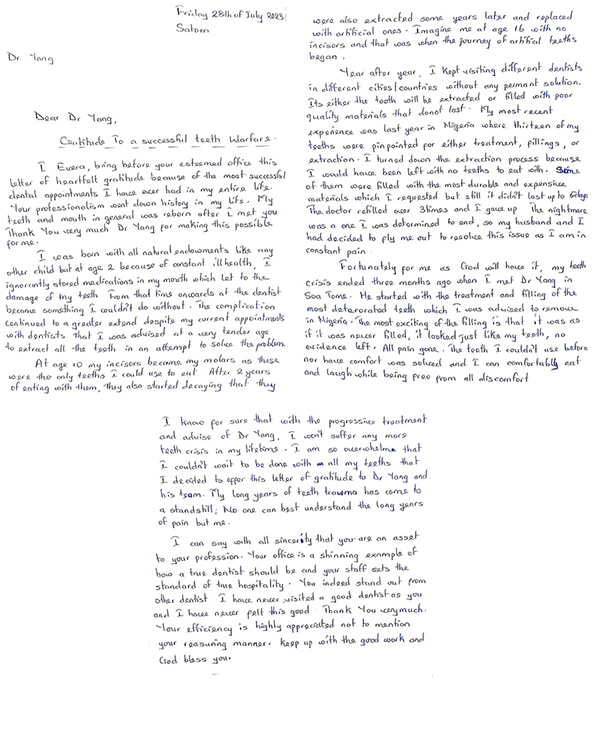 Friday 28th of July 2023
Satom
Dr Yang
Dear Dr Yang,
Gratitude To a successful teeth Warfare.
I Euera, bring before your esteemed office this
letter of heartfelt gratitude because of the most successful
dental appointments I have ever had in my entire life.
Your professionalism went down history in my life. My
teeth and mouth in general was reborn after I met you
Thank You very much Dr Yang for making this possible
for me.
I was born with all natural endowments like any
other child but at age 2 because of constant ill health, I
ignorantly stored medications in my mouth which let to the
damage of my teeth From that time onwards at the dentist
became something I couldn't do without. The complication
continued to a greater extend despite my current appointments
with dentists That I was advised at a very tender age
to extract all the teeth in an attempt to solve the problem
At age 10 my incisors became my molars as these
were the only teeths I could use to eat After 2 years
of eating with them, They also started decaying that they
were also extracted some years later and replaced
with artificial ones. Imagine me at age 16 with no
incisors and that was when the journey of artificial teeths
began.
Year after year, I kept visiting different dentists
in different cities/countries without any permant solution.
Its either the tooth will be extracted or filled with poor
quality materials that donot last. My most recent
experience was last year in Nigeria where thirteen of my
teeths were pinpointed for either treatment, fillings, or
extraction. I turned down the extraction process because
I would have been left with no teeths to eat with. Some
of them were filled with the most durable and expensive
materials which I requested but still it didn't last up to 6days
The doctor refilled over 3times and I gave up The nightmare
was a one I was determined to end, so my husband and I
had decided to fly me out to resolve this issue as I am in
constant pain.
Fortunately for me as God will have it, my teeth
crisis ended three months ago when I met Dr Yang in
Sao Tome. He started with the treatment and filling of the
most deteriorated teeth which I was advised to remove
in Nigeria. The most exciting of the filling is that it was as
if it was never filled, it looked just like my teeth, no
evidence left. All pain gone. The tooth I couldn't use before
nor have comfort was solved and I can comfortably eat
and laugh while being free from all discomfort
I know for sure that with the progressive treatment
and advise of Dr Yang, I won't suffer any more
teeth crisis in my lifetime. I am so overwhelme that
I couldn't wait to be done with all my teeths that
I decided to offer this letter of gratitude to Dr Yang and
his team. My long years of teeth trauma has come to
a standstill; No one can best understand the long years
of pain but me.
I can say with all sincerity that you are an asset
to your profession. Your office is a shinning example of
how a true dentist should be and your staff sets the
standard of true hospitality. You indeed stand out from
other dentist I have never visited a good dentist as you
and I have never felt this good Thank You verymuch.
Your efficiency is highly appreciated not to mention
your reasuring manner. Keep up with the good work and
God bless you.